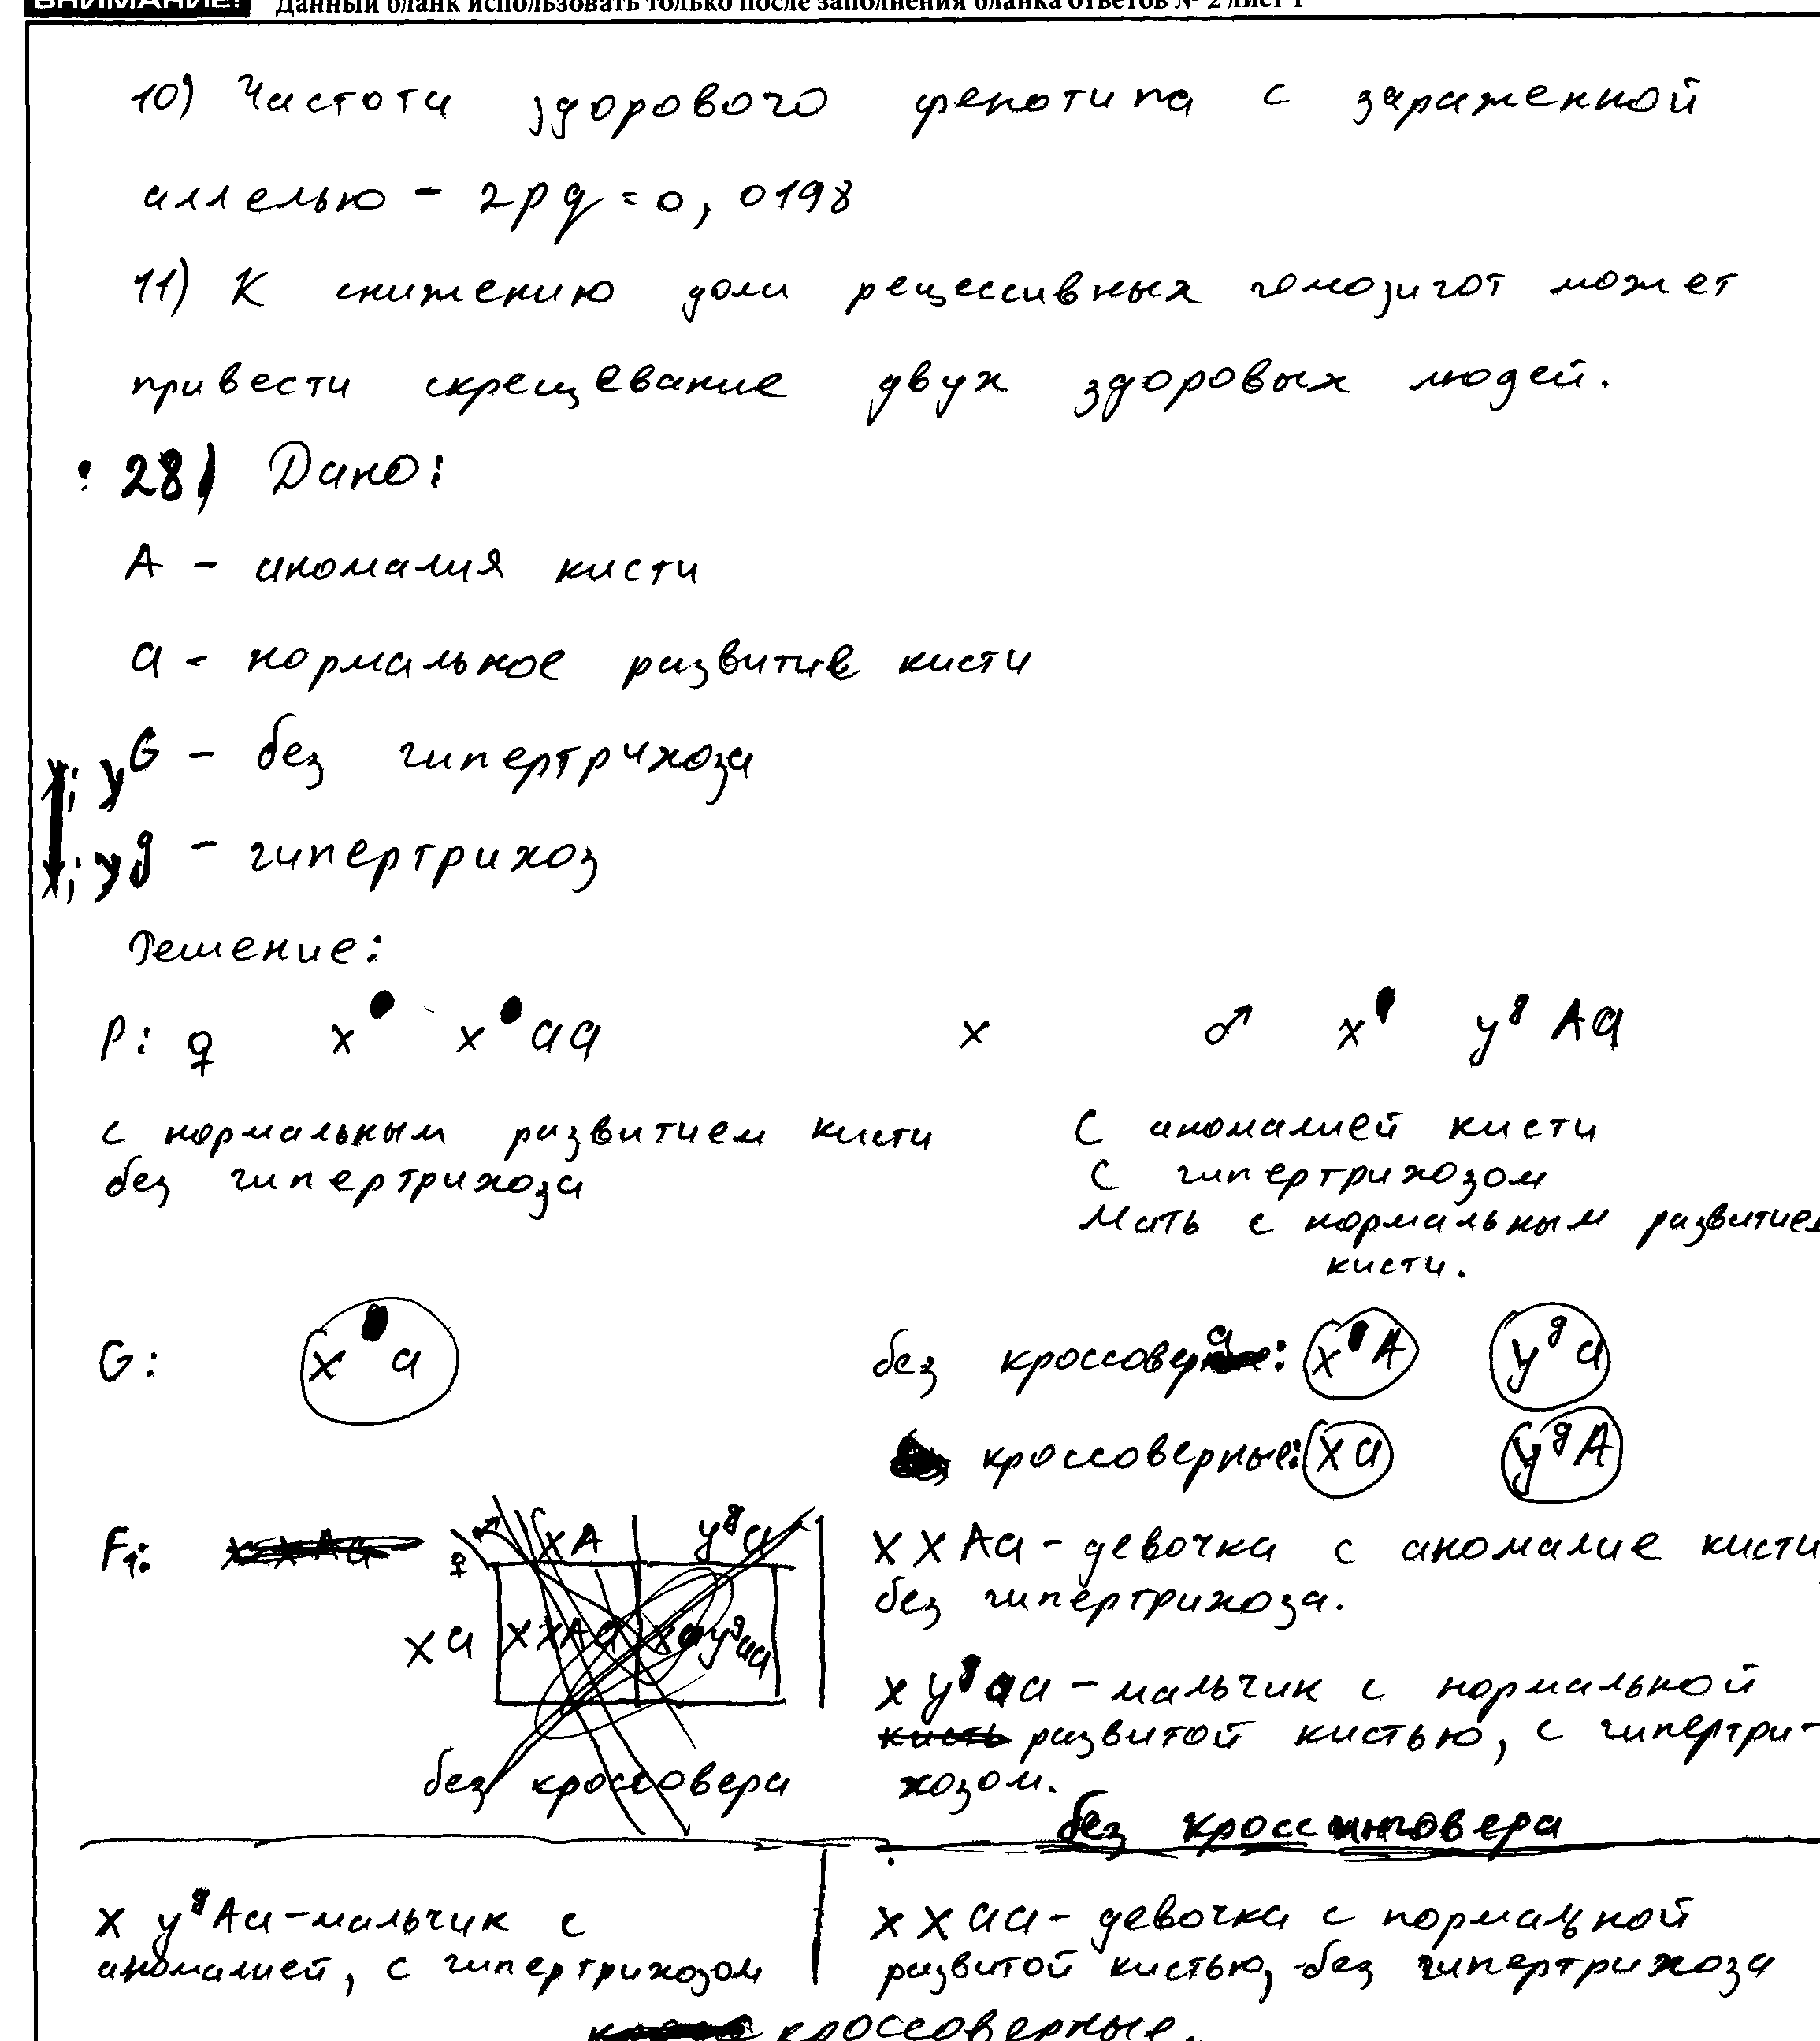 ВНИМАНИЕ! Данный бланк использовать только после заполнения бланка ответов № 2 лист 1
10) Частота здорового фенотипа с зараженной
аллелью - 2pq = 0,0198
11) К снижению доли рецессивных гомозигот может
привести скрещевание двух здоровых людей.
28) Дано:
A - аномалия кисти
a - нормальное развитие кисти
y^G - без гипертрихоза
y^g - гипертрихоз
Решение:
P: ♀ x x aa x ♂ x y^g Aa
с нормальным развитием кисти С аномалией кисти
без гипертрихоза С гипертрихозом
Мать с нормальным развитием
кисти.
G: x a без кроссовера: x A y^g a
кроссоверные: x a y^g A
F1: ♀ ♂ xA y^g a X X Aa - девочка с аномалие кисти,
без гипертрихоза.
x a x x Aa x y^g aa
x y^g aa - мальчик с нормальной
кисть развитой кистью, с гипертри-
хозом.
без кроссовера
без кроссинговера
x y^g Aa - мальчик с X X aa - девочка с нормальной
аномалией, с гипертрихозом развитой кистью, без гипертрихоза
кроссоверные.